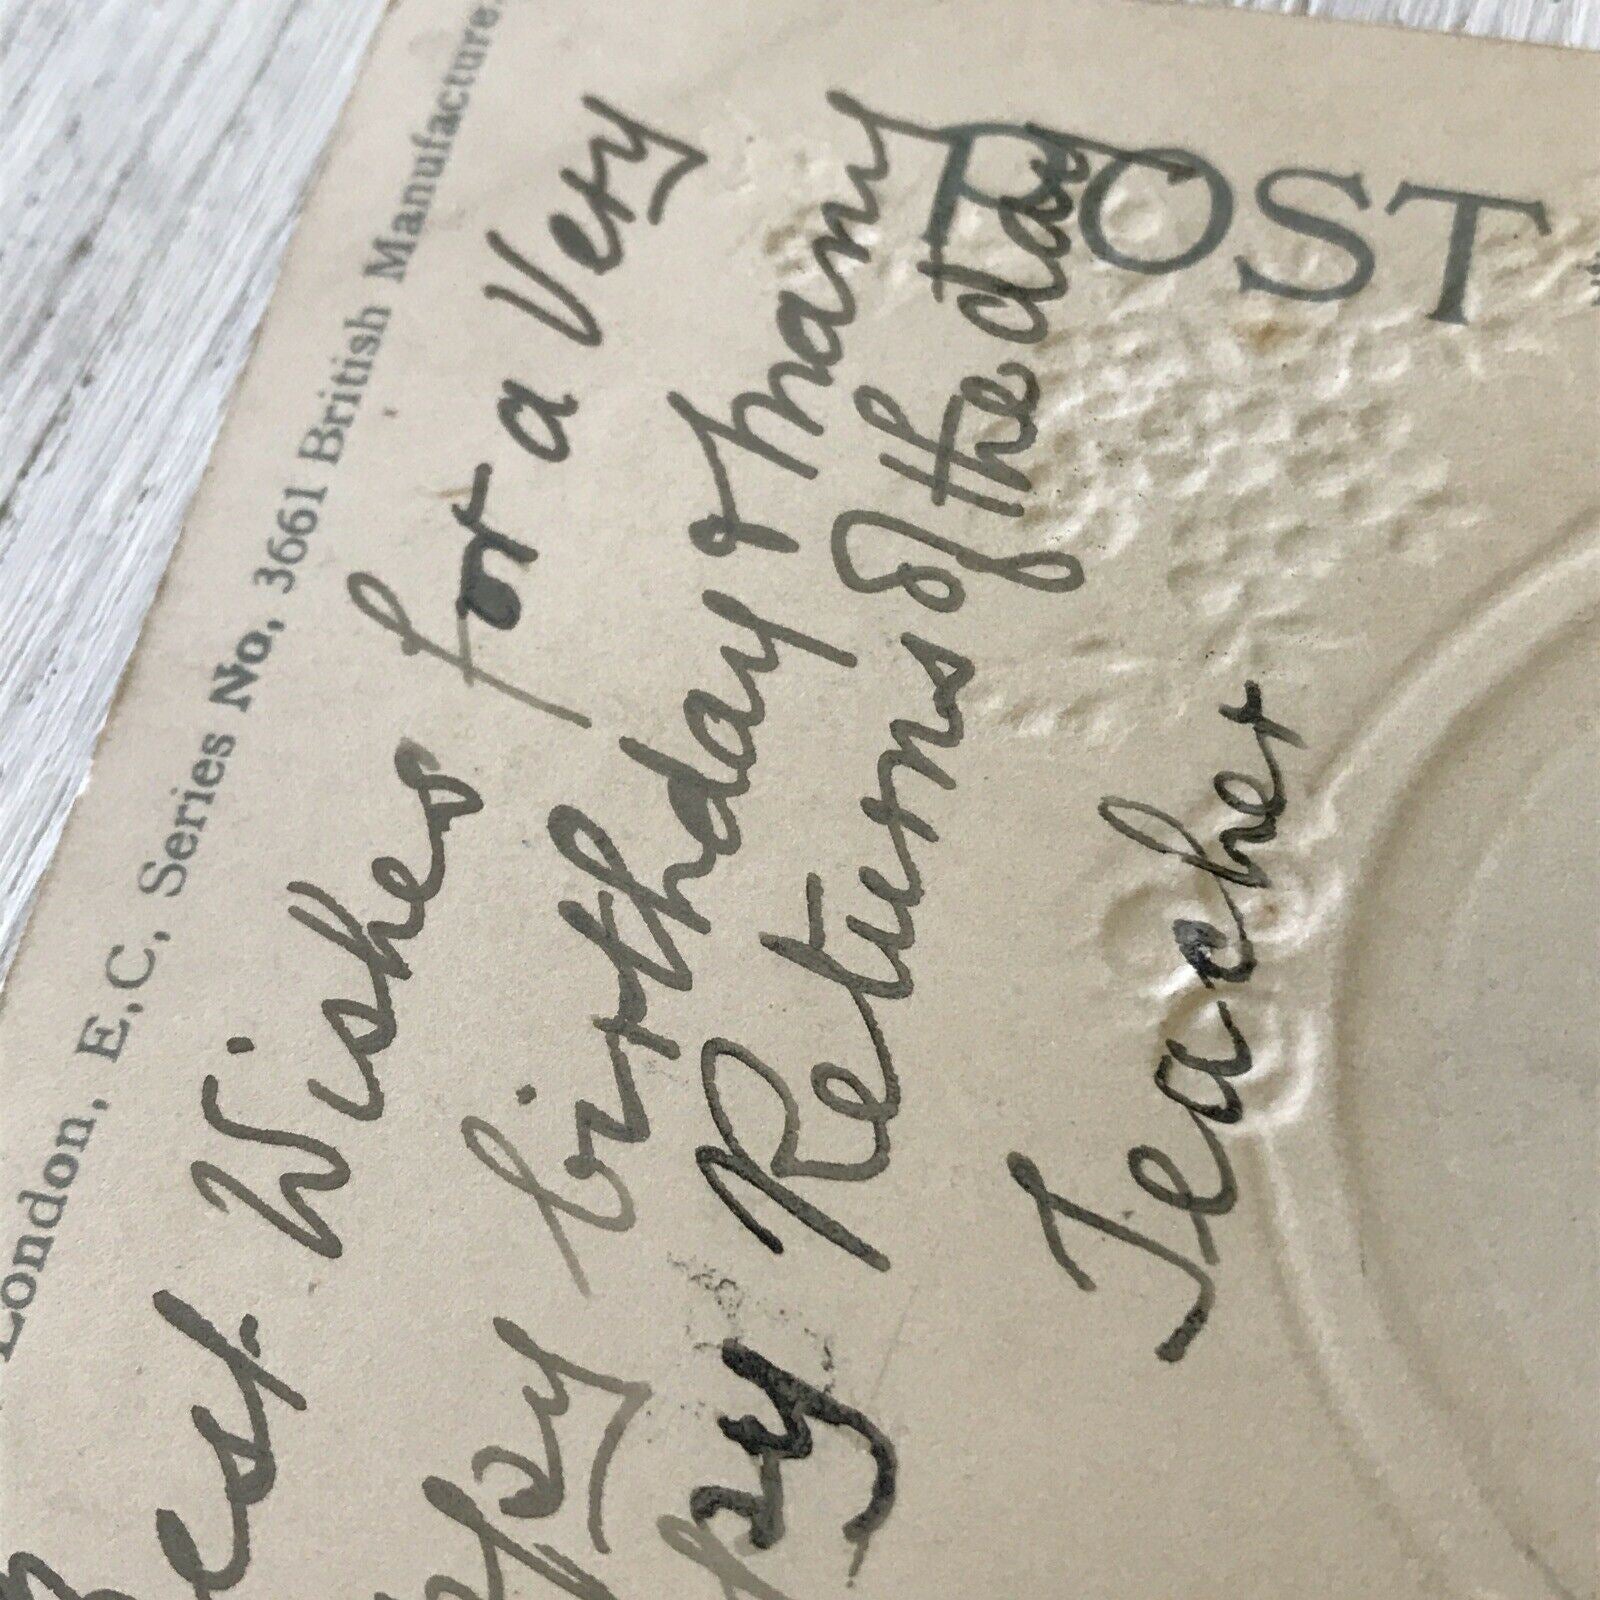 London, E.C. Series No. 3661 British Manufacture.
POST
Best Wishes for a Very
birthday & many
Returns of the day
Teacher